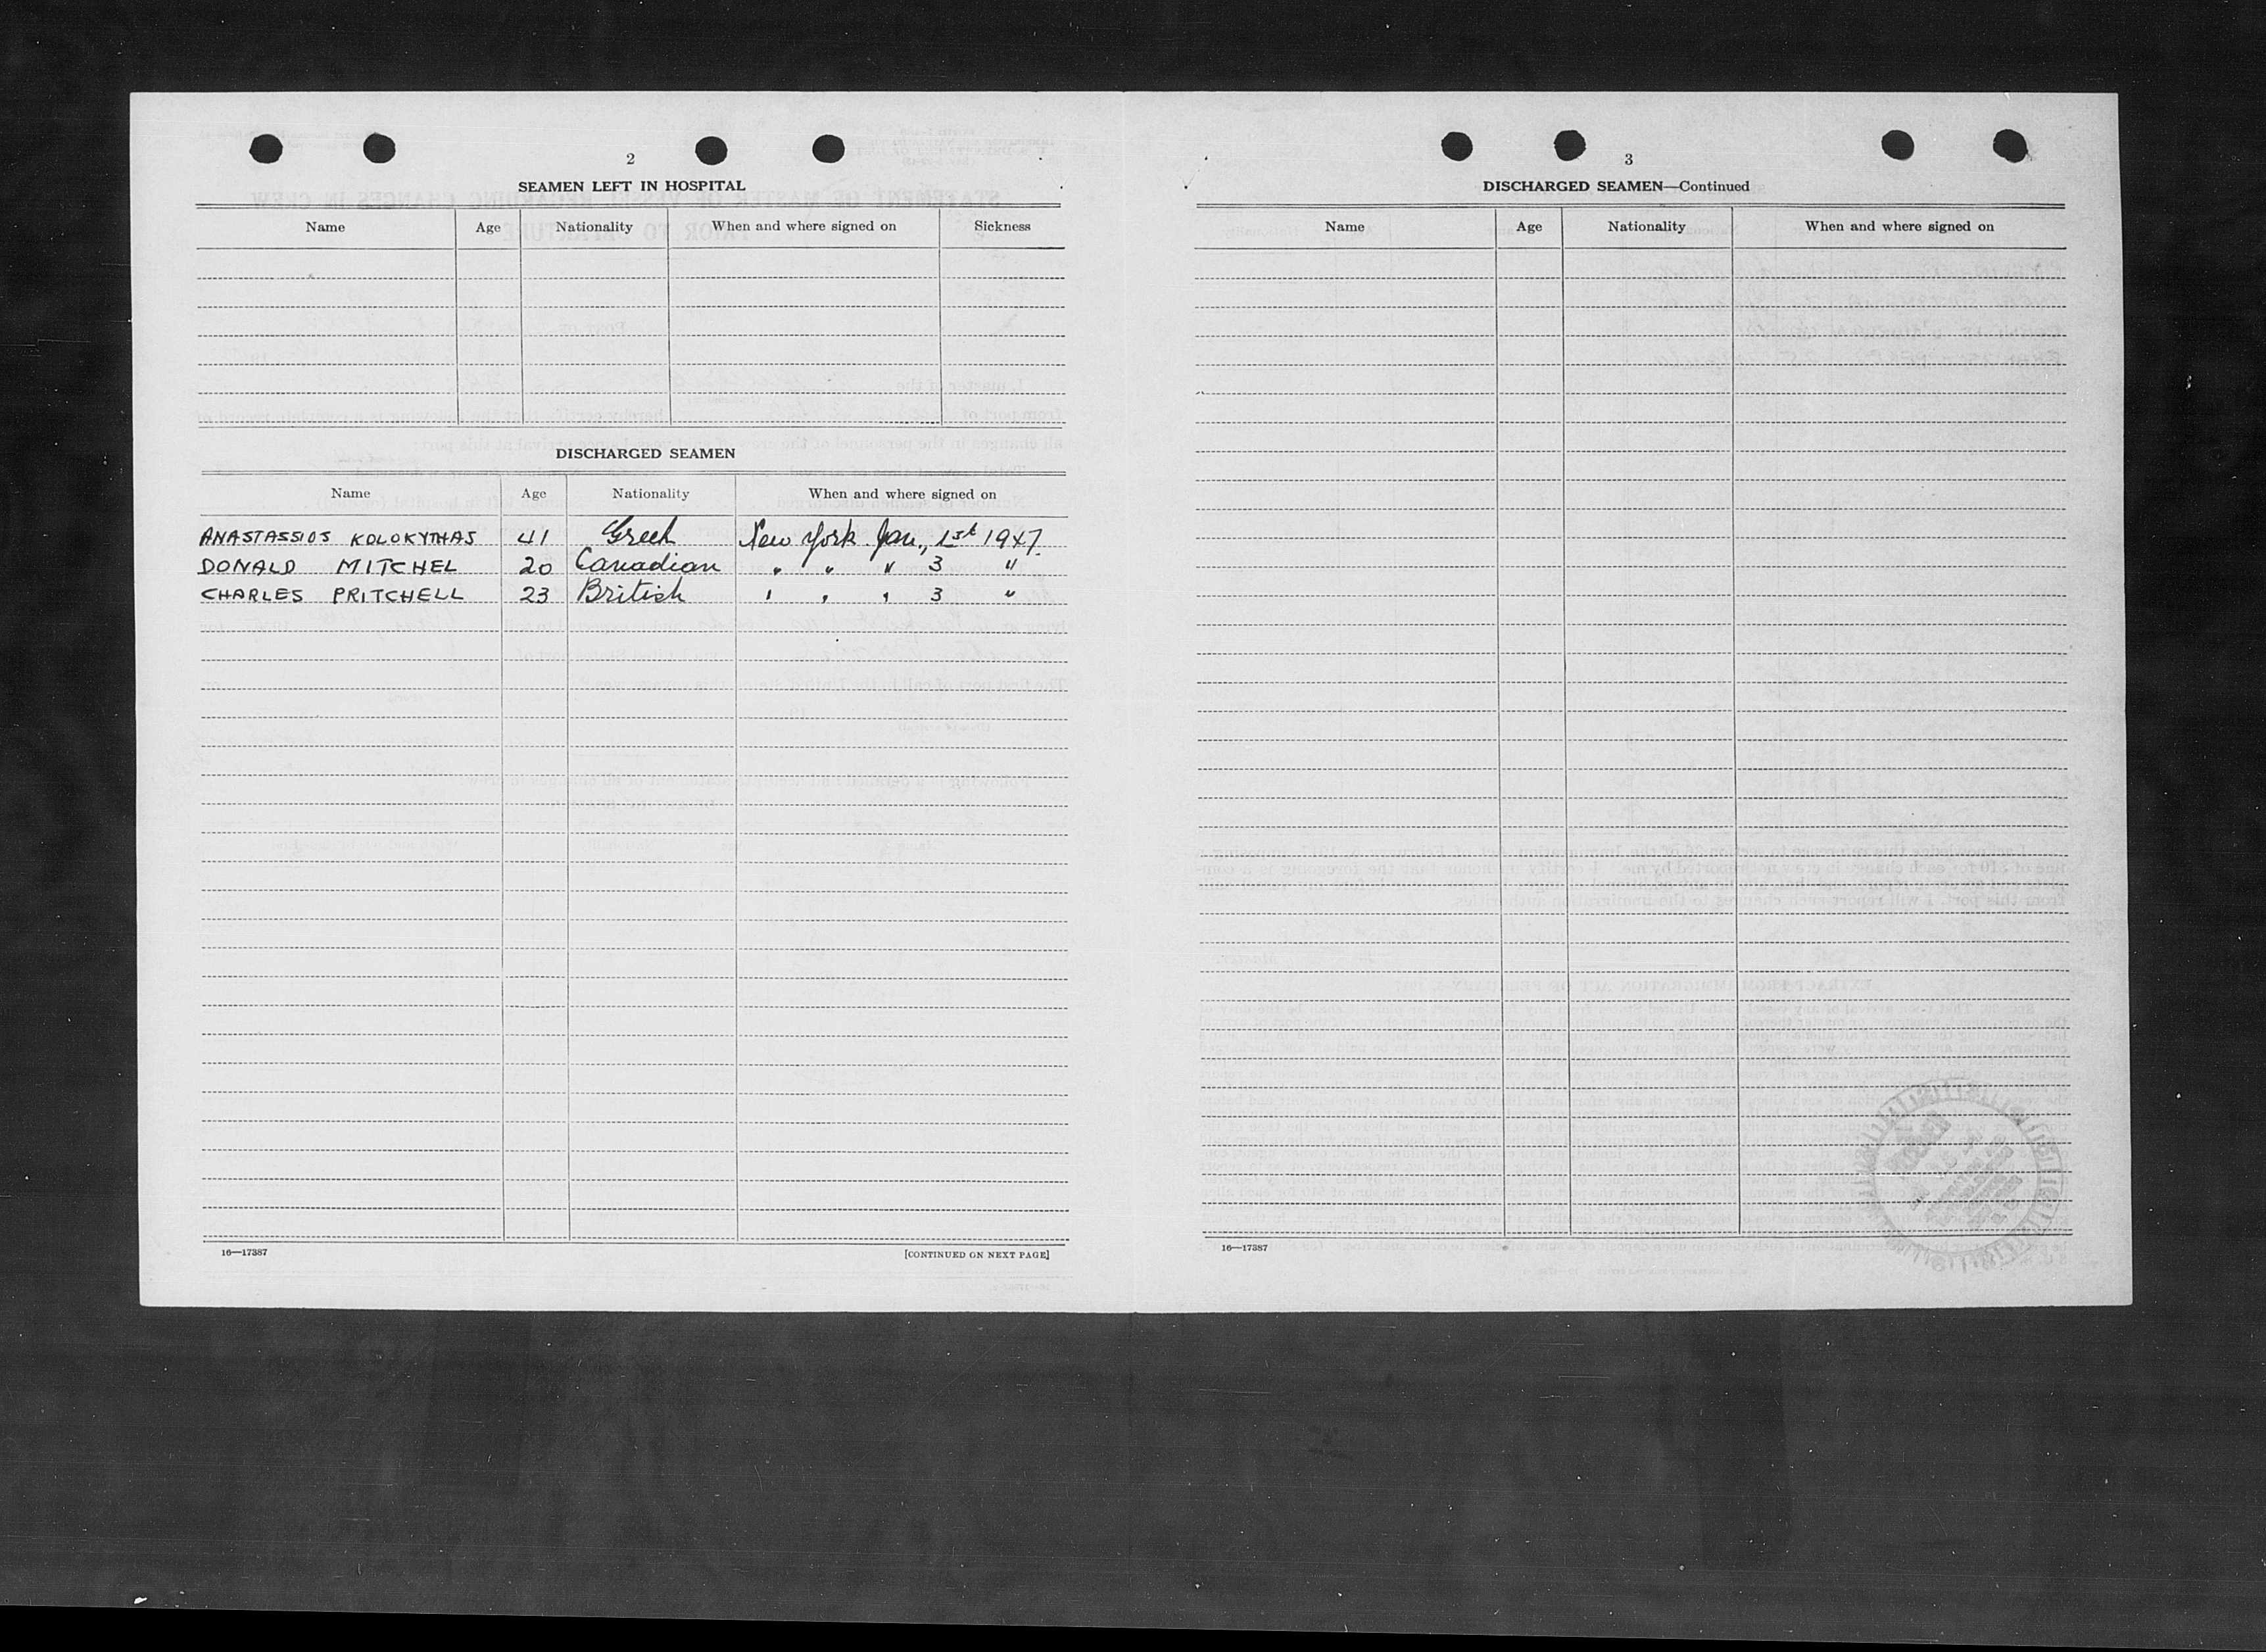 2
SEAMEN LEFT IN HOSPITAL
Name Age Nationality When and where signed on Sickness
DISCHARGED SEAMEN
Name Age Nationality When and where signed on
ANASTASSIOS KOLOKYTHAS 41 Greek New York Jan., 1st 1947.
DONALD MITCHEL 20 Canadian " " " 3 "
CHARLES PRITCHELL 23 British " " " 3 "
16—17387 [CONTINUED ON NEXT PAGE]
3
DISCHARGED SEAMEN—Continued
Name Age Nationality When and where signed on
16—17387